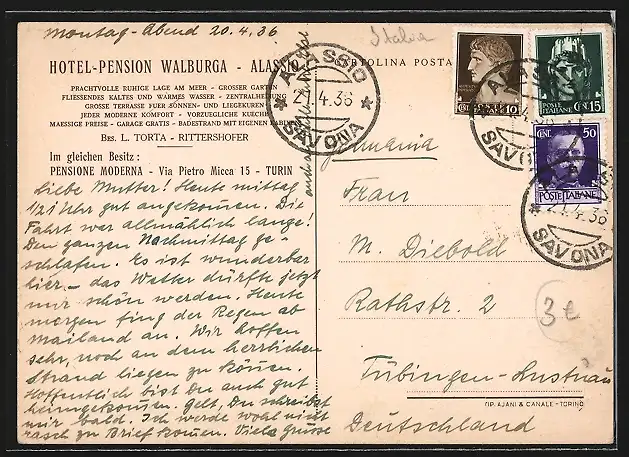 Montag-Abend 20.4.36
Italia
HOTEL-PENSION WALBURGA - ALASSIO
PRACHTVOLLE RUHIGE LAGE AM MEER - GROSSER GARTEN
FLIESSENDES KALTES UND WARMES WASSER - ZENTRALHEIZUNG
GROSSE TERRASSE FUER SONNEN- UND LIEGEKUREN
JEDER MODERNE KOMFORT - VORZUEGLICHE KUECHE
MAESSIGE PREISE - GARAGE GRATIS - BADESTRAND MIT EIGENEN KABINEN
BES. L. TORTA - RITTERSHOFER
Im gleichen Besitz:
PENSIONE MODERNA - Via Pietro Micca 15 - TURIN
Liebe Mutter! Heute mittag
1/21 Uhr gut angekommen. Die
Fahrt war allmählich lange!
Den ganzen Nachmittag ge-
schlafen. Es ist wunderbar
hier - das Wetter dürfte jetzt
nur schön werden. Heute
morgen fing der Regen ab
Mailand an. Wir hoffen
sehr, noch an dem herrlichen
Strand liegen zu können.
Hoffentlich bist Du auch gut
heimgekommen. Gelt, Du schreibst
mir bald. Ich werde wohl nicht
rasch zu Brief kommen. Viele Grüsse
CARTOLINA POSTA
ALASSIO
21.4.36
SAVONA
CENT. 10
POSTE ITALIANE
CENT. 15
POSTE ITALIANE
CENT. 50
POSTE ITALIANE
SAVONA
21.4.36
SAVONA
Germania
Frau
M. Diebold
Rathstr. 2
Tübingen-Lustnau
Deutschland
3 €
TIP. AJANI & CANALE - TORINO